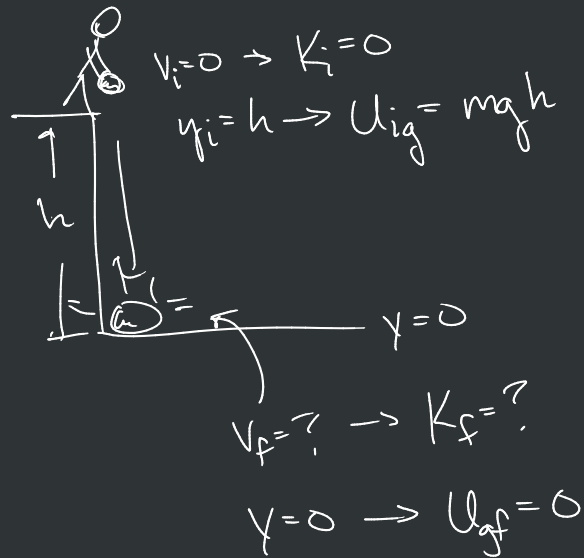 vᵢ=0 → Kᵢ=0
yᵢ=h → Uᵢg= mgh
h
m
y=0
v_f=? → K_f=?
y=0 → U_gf=0